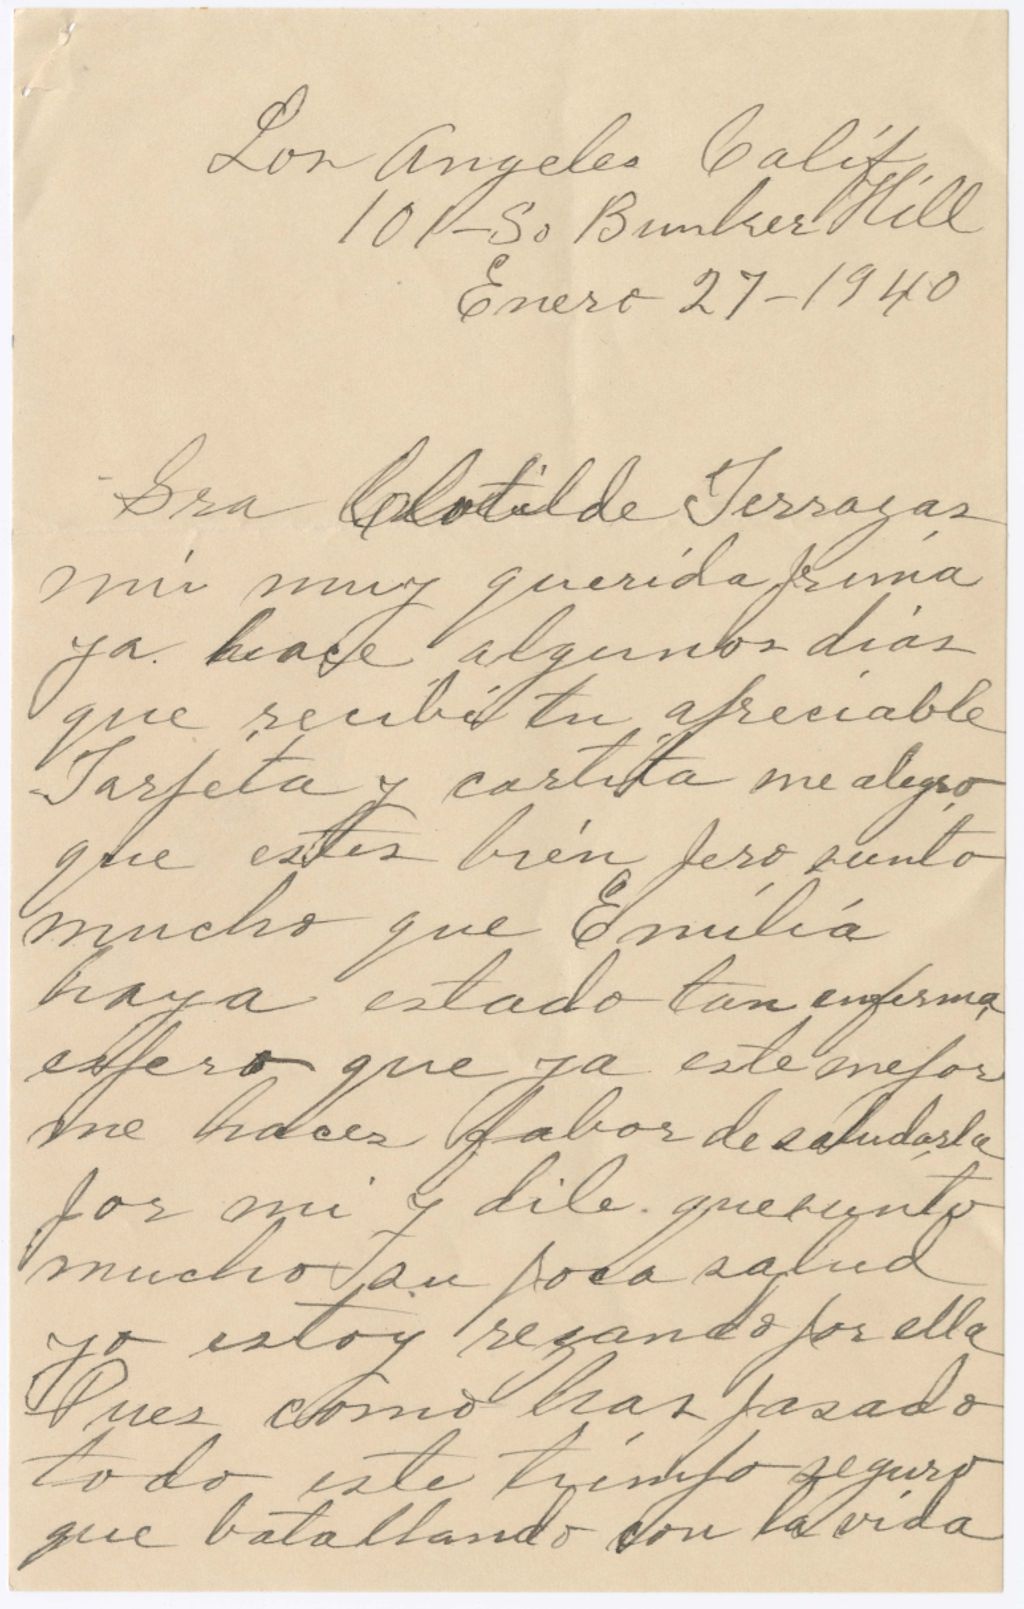 Los Angeles Calif
101-So Bunker Hill
Enero 27-1940
Sra Clotilde Terrazas
mi muy querida prima
ya hace algunos dias
que recibi tu apreciable
Tarjeta y cartita me alegro
que estes bién pero siento
mucho que Emilia
haya estado tan enferma
espero que ya este mejor
me haces fabor de saludarla
por mi y dile que siento
mucho su poca salud
yo estoy rezando por ella
Pues como has pasado
todo este tiempo seguro
que batallando con la vida